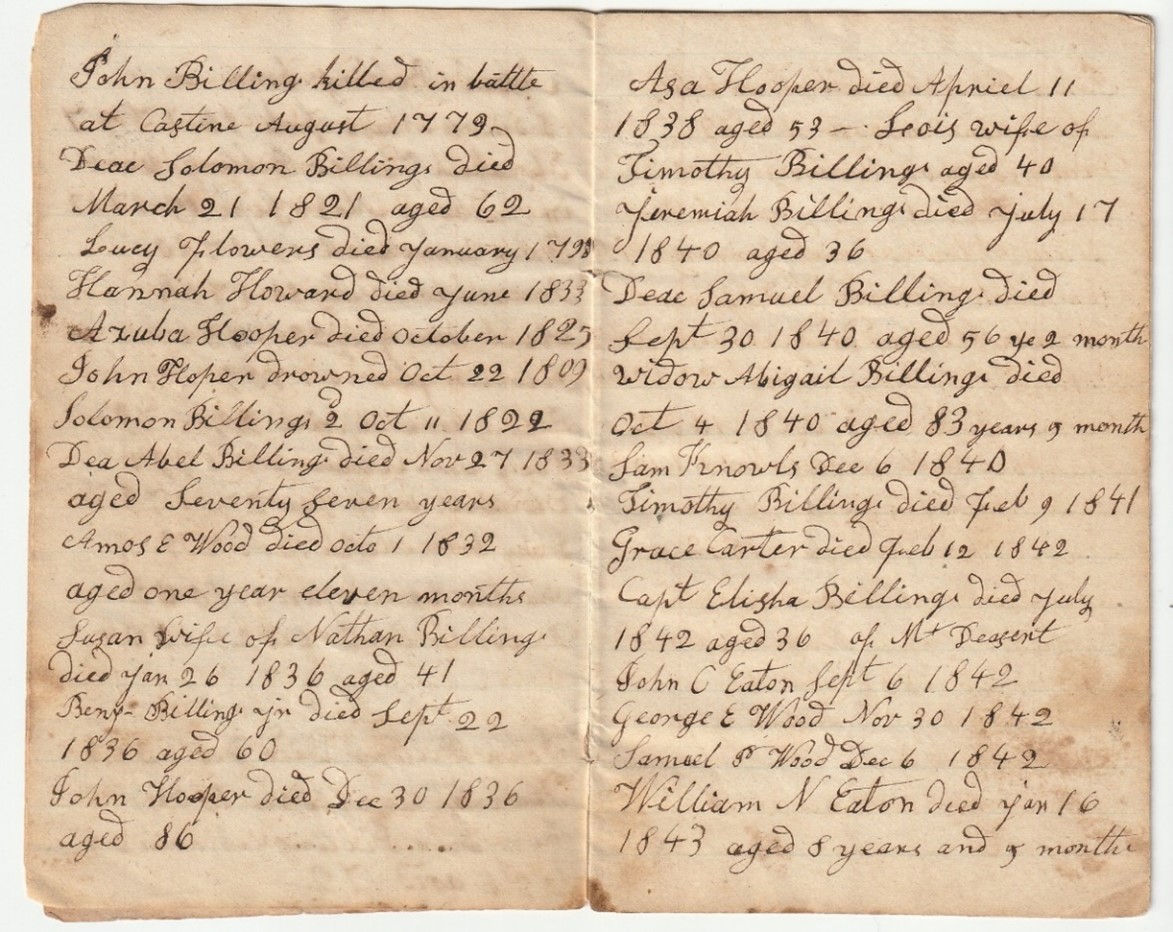 John Billings killed in battle
at Castine August 1779
Deac Solomon Billings died
March 21 1821 aged 62
Lucy Flowers died January 1798
Hannah Howard died June 1833
Azuba Hooper died october 1825
John Hoper drowned Oct 22 1809
Solomon Billings 2d Oct 11 1822
Dea Abel Billings died Nov 27 1833
aged Seventy Seven years
Amos E Wood died octo 1 1832
aged one year eleven months
Susan wife of Nathan Billings
died Jan 26 1836 aged 41
Benj- Billings Jr died Sept 22
1836 aged 60
John Hooper died Dec 30 1836
aged 86
Asa Hooper died Apriel 11
1838 aged 53 - Leois wife of
Timothy Billings aged 40
Jeremiah Billings died July 17
1840 aged 36
Deac Samuel Billings died
Sept 30 1840 aged 56 ye 2 month
widow Abigail Billings died
Oct 4 1840 aged 83 years 9 month
Sam Knowls Dec 6 1840
Timothy Billings died Feb 9 1841
Grace Carter died Feb 12 1842
Capt Elisha Billings died July
1842 aged 36 of Mt Deasert
John C Eaton Sept 6 1842
George E Wood Nov 30 1842
Samuel P Wood Dec 6 1842
William N Eaton died Jan 16
1843 aged 8 years and 9 months